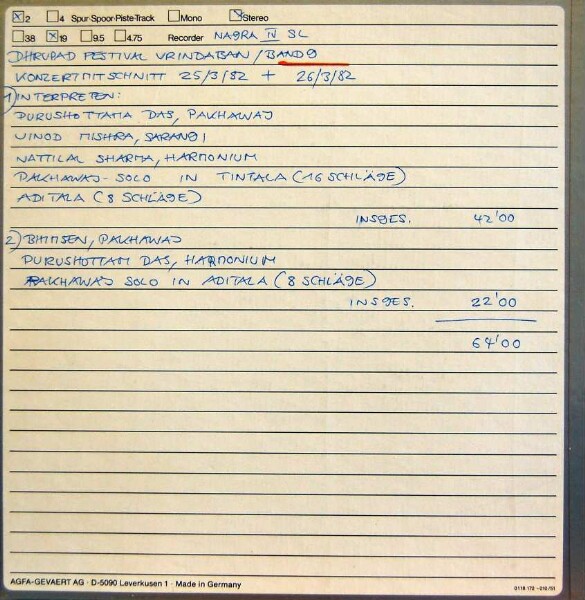 ☒2 ☐4 Spur-Spoor-Piste-Track ☐Mono ☒Stereo
☐38 ☒19 ☐9.5 ☐4.75 Recorder NAGRA IV SL
DHRUPAD FESTIVAL VRINDABAN / BAND 9
KONZERTMITSCHNITT 25/3/82 + 26/3/82
1) INTERPRETEN:
PURUSHOTTAMA DAS, PAKHAWAJ
VINOD MISHRA, SARANGI
NATTILAL SHARMA, HARMONIUM
PAKHAWAJ-SOLO IN TINTALA (16 SCHLÄGE)
ADITALA (8 SCHLÄGE)
INSGES. 42'00
2) BHIMSEN, PAKHAWAJ
PURUSHOTTAM DAS, HARMONIUM
PAKHAWAJ SOLO IN ADITALA (8 SCHLÄGE)
INSGES. 22'00
64'00
AGFA-GEVAERT AG · D-5090 Leverkusen 1 · Made in Germany